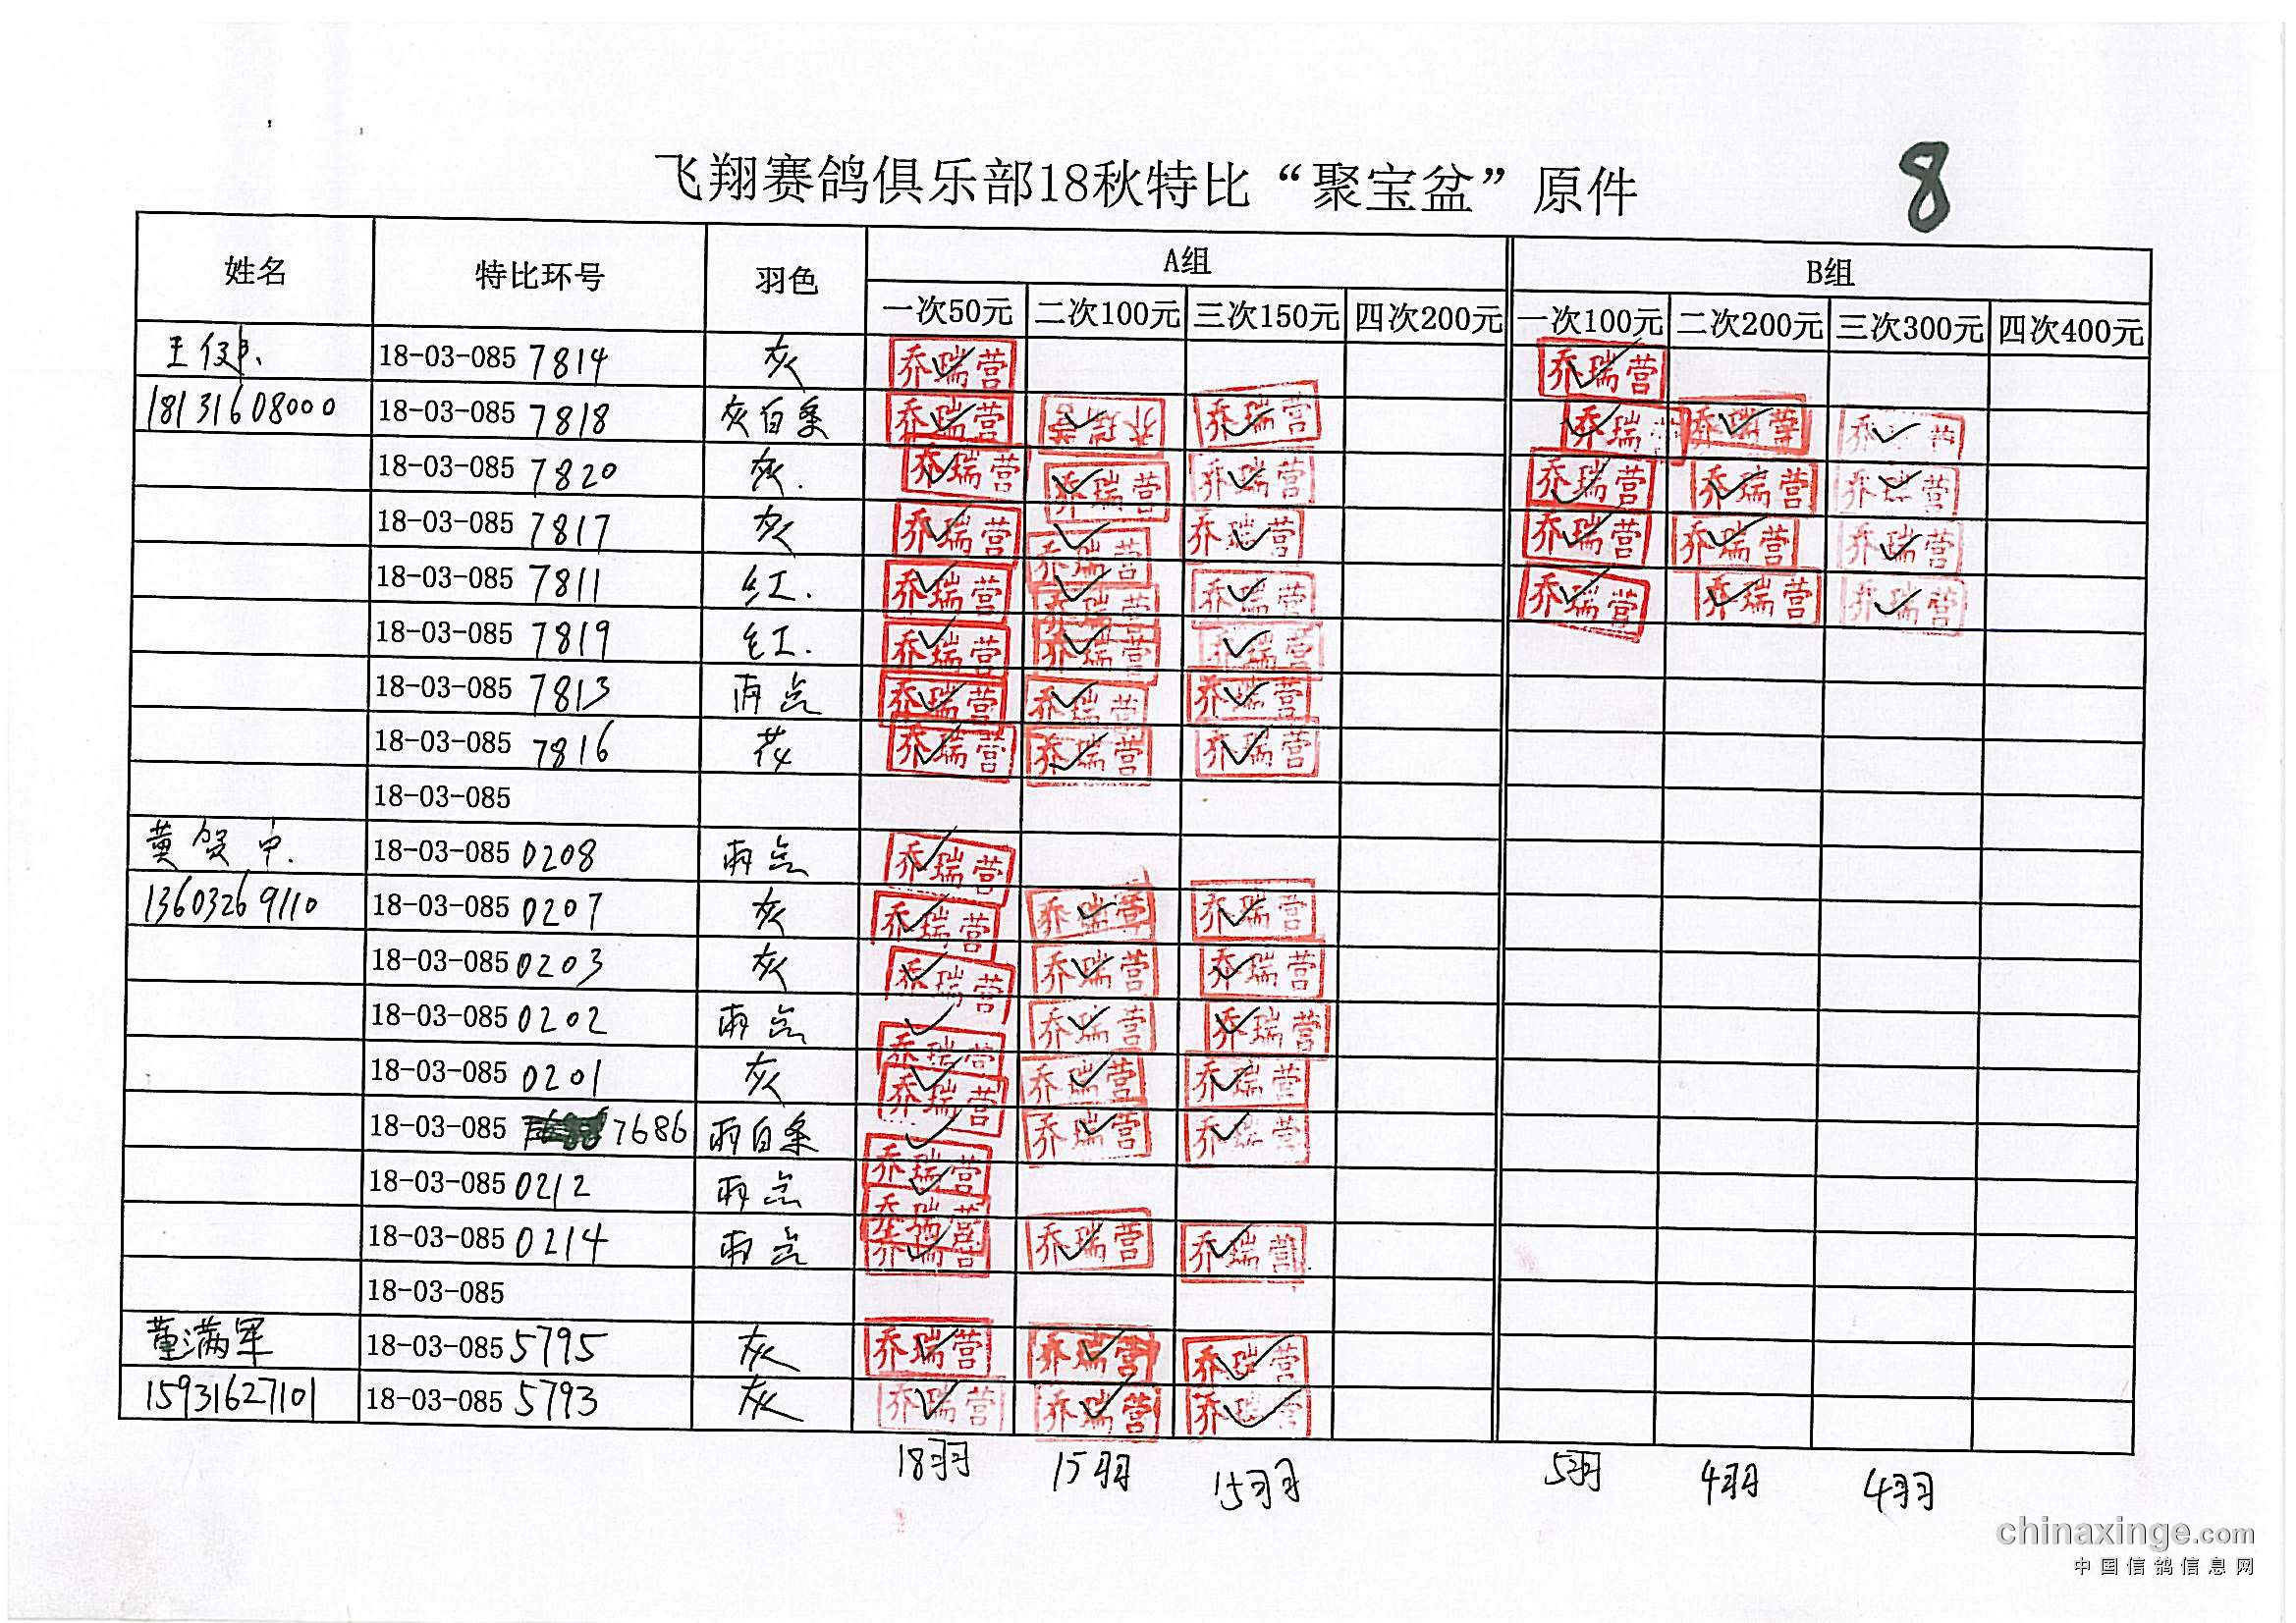 飞翔赛鸽俱乐部18秋特比“聚宝盆”原件 8
姓名 特比环号 羽色 A组 B组
一次50元 二次100元 三次150元 四次200元 一次100元 二次200元 三次300元 四次400元
王 18-03-085 7814 灰 乔瑞营 乔瑞营
18131608000 18-03-085 7818 灰白条 乔瑞营 乔瑞营 乔瑞营 乔瑞营 乔瑞营 乔瑞营
18-03-085 7820 灰. 乔瑞营 乔瑞营 乔瑞营 乔瑞营 乔瑞营 乔瑞营
18-03-085 7817 灰 乔瑞营 乔瑞营 乔瑞营 乔瑞营 乔瑞营 乔瑞营
18-03-085 7811 红. 乔瑞营 乔瑞营 乔瑞营 乔瑞营 乔瑞营 乔瑞营
18-03-085 7819 红. 乔瑞营 乔瑞营 乔瑞营
18-03-085 7813 雨点 乔瑞营 乔瑞营 乔瑞营
18-03-085 7816 花 乔瑞营 乔瑞营 乔瑞营
18-03-085
黄贺申. 18-03-085 0208 雨点 乔瑞营
13603269110 18-03-085 0207 灰 乔瑞营 乔瑞营 乔瑞营
18-03-085 0203 灰 乔瑞营 乔瑞营 乔瑞营
18-03-085 0202 雨点 乔瑞营 乔瑞营 乔瑞营
18-03-085 0201 灰 乔瑞营 乔瑞营 乔瑞营
18-03-085 7686 雨白条 乔瑞营 乔瑞营 乔瑞营
18-03-085 0212 雨点 乔瑞营
18-03-085 0214 雨点 乔瑞营 乔瑞营 乔瑞营
18-03-085
董满军 18-03-085 5795 灰 乔瑞营 乔瑞营 乔瑞营
15931627101 18-03-085 5793 灰 乔瑞营 乔瑞营 乔瑞营
18羽 15羽 15羽 5羽 4羽 4羽
chinaxinge.com
中国信鸽信息网